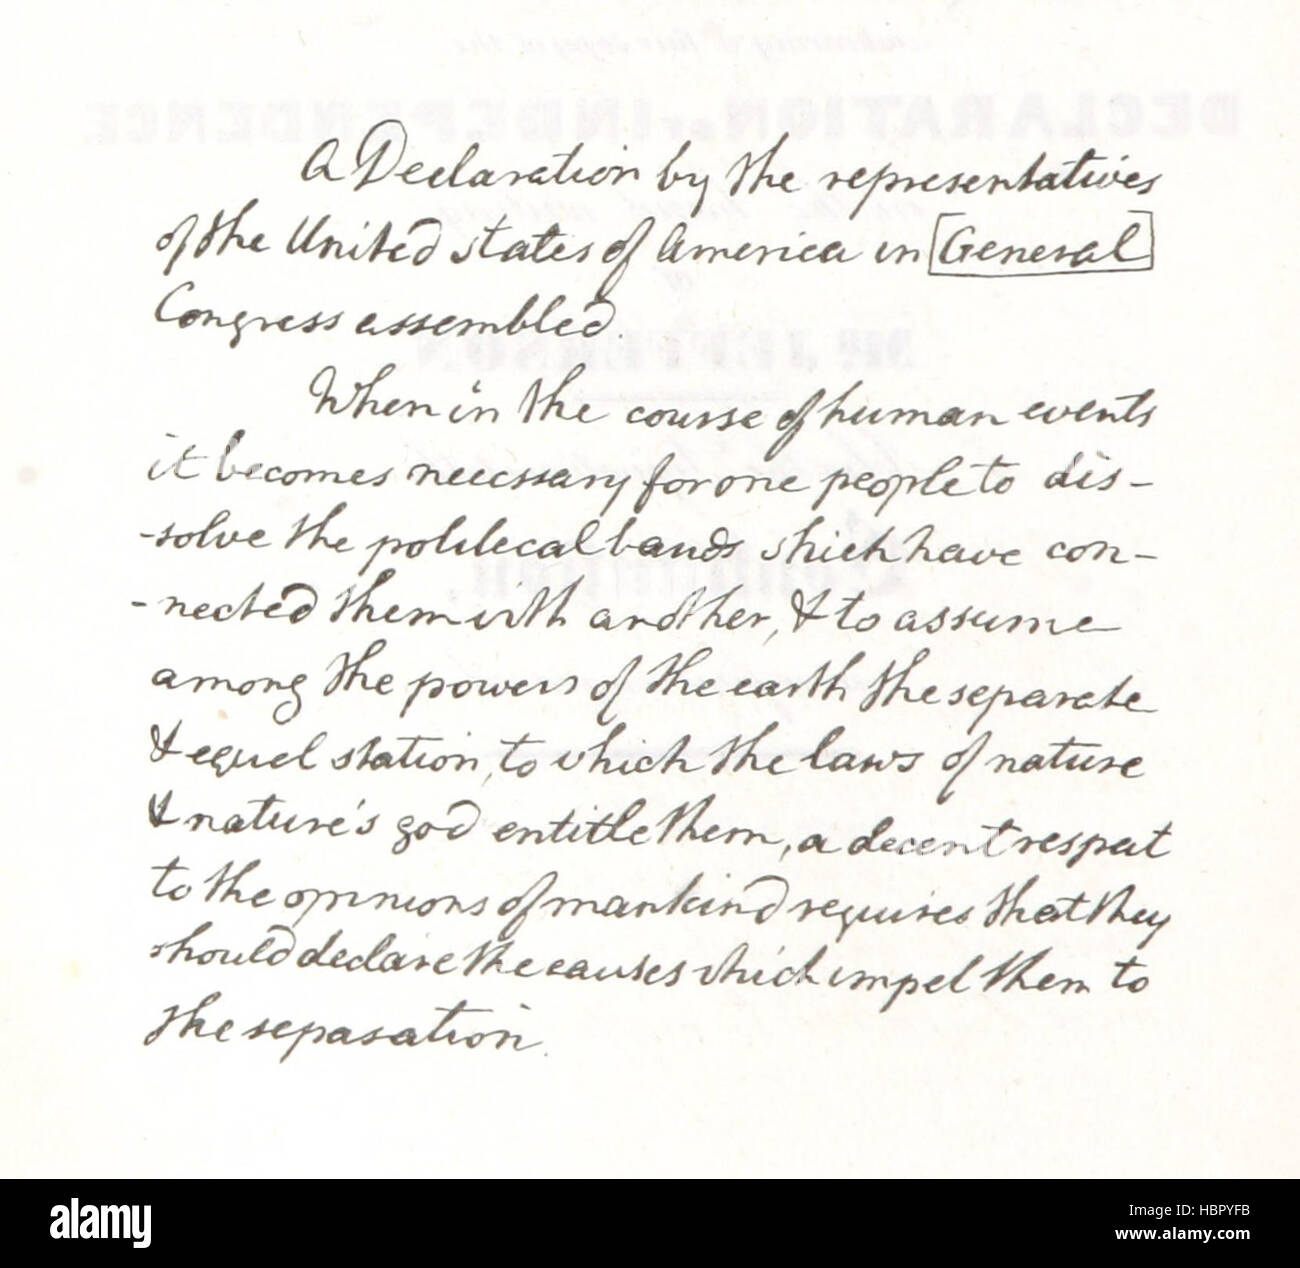 A Declaration by the representatives
of the United states of America in [General]
Congress assembled.
When in the course of human events
it becomes necessary for one people to dis-
-solve the political bands which have con-
-nected them with another, & to assume
among the powers of the earth the separate
& equal station, to which the laws of nature
& nature's god entitle them, a decent respect
to the opinions of mankind requires that they
should declare the causes which impel them to
the separation.
alamy stock photo
HBPYFB
www.alamy.com